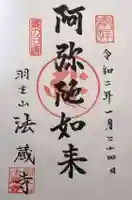 令和二年一月二十四日
阿弥陀如来
羽生山
法蔵寺